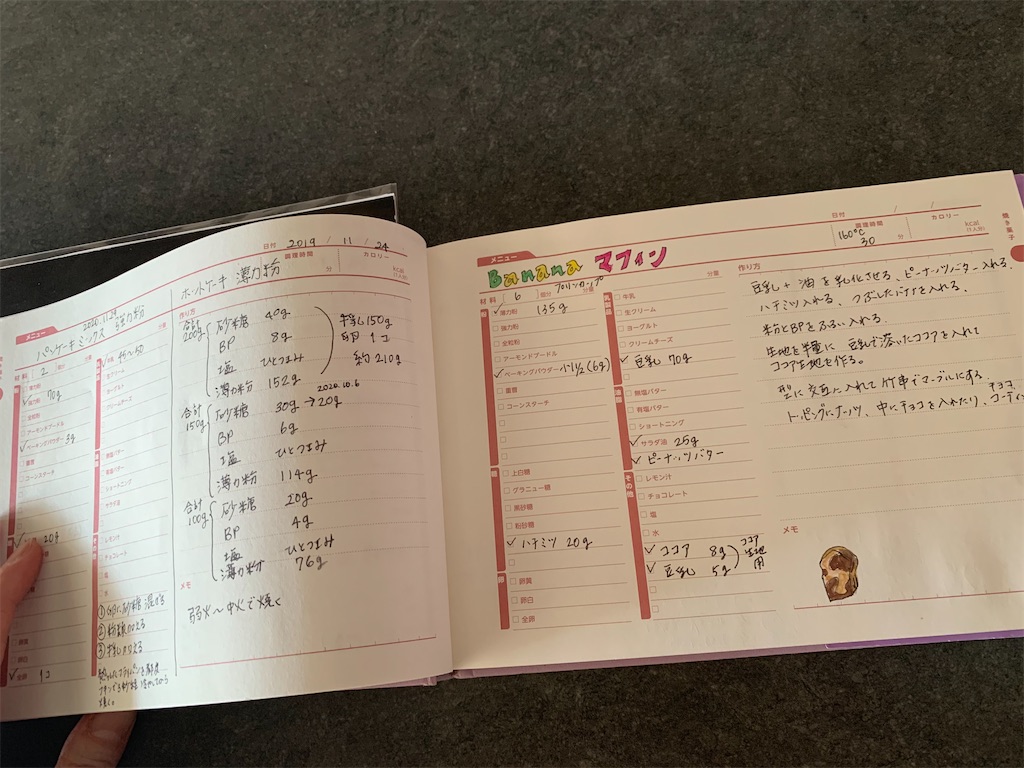 日付 2019 / 11 / 24
調理時間 分
カロリー kcal (1人前)
メニュー 2020.11.29
パンケーキミックス 強力粉
ホットケーキ 薄力粉
材料 2 個分 分量
薄力粉
強力粉 70g
全粒粉
アーモンドプードル
ベーキングパウダー 3g
重曹
コーンスターチ
20g
卵黄
卵白
全卵 1コ
牛乳 45〜50
生クリーム
ヨーグルト
クリームチーズ
無塩バター
有塩バター
ショートニング
サラダ油
レモン汁
チョコレート
塩
水
① 卵に砂糖混ぜる
② 粉類加える
③ 牛乳加える
作り方
合計 200g
砂糖 40g
BP 8g
塩 ひとつまみ
薄力粉 152g
牛乳150g
卵 1コ
約210g
2020.10.6
合計 150g
砂糖 30g→20g
BP 6g
塩 ひとつまみ
薄力粉 114g
合計 100g
砂糖 20g
BP 4g
塩 ひとつまみ
薄力粉 76g
メモ
弱火〜中火で焼く
メニュー
Banana マフィン
日付 / /
調理時間 160℃ 30 分
カロリー kcal (1人前)
焼き菓子
材料 6 個分 プリンカップ 分量
粉
薄力粉 135g
強力粉
全粒粉
アーモンドプードル
ベーキングパウダー 小1 1/2 (6g)
重曹
コーンスターチ
糖
上白糖
グラニュー糖
黒砂糖
粉砂糖
ハチミツ 20g
卵
卵黄
卵白
全卵
乳製品 分量
牛乳
生クリーム
ヨーグルト
クリームチーズ
豆乳 70g
油脂
無塩バター
有塩バター
ショートニング
サラダ油 25g
ピーナッツバター
その他
レモン汁
チョコレート
塩
水
ココア 8g
豆乳 5g
ココア生地用
作り方
豆乳+油を乳化させる、ピーナッツバター入れる、
ハチミツ入れる、つぶしたバナナを入れる。
粉とBPをふるい入れる。
生地を半量に豆乳で溶いたココアを入れて
ココア生地を作る。
型に交互に入れて竹串でマーブルにする
トッピングにナッツ、中にチョコを入れたり、チョココーティ
メモ